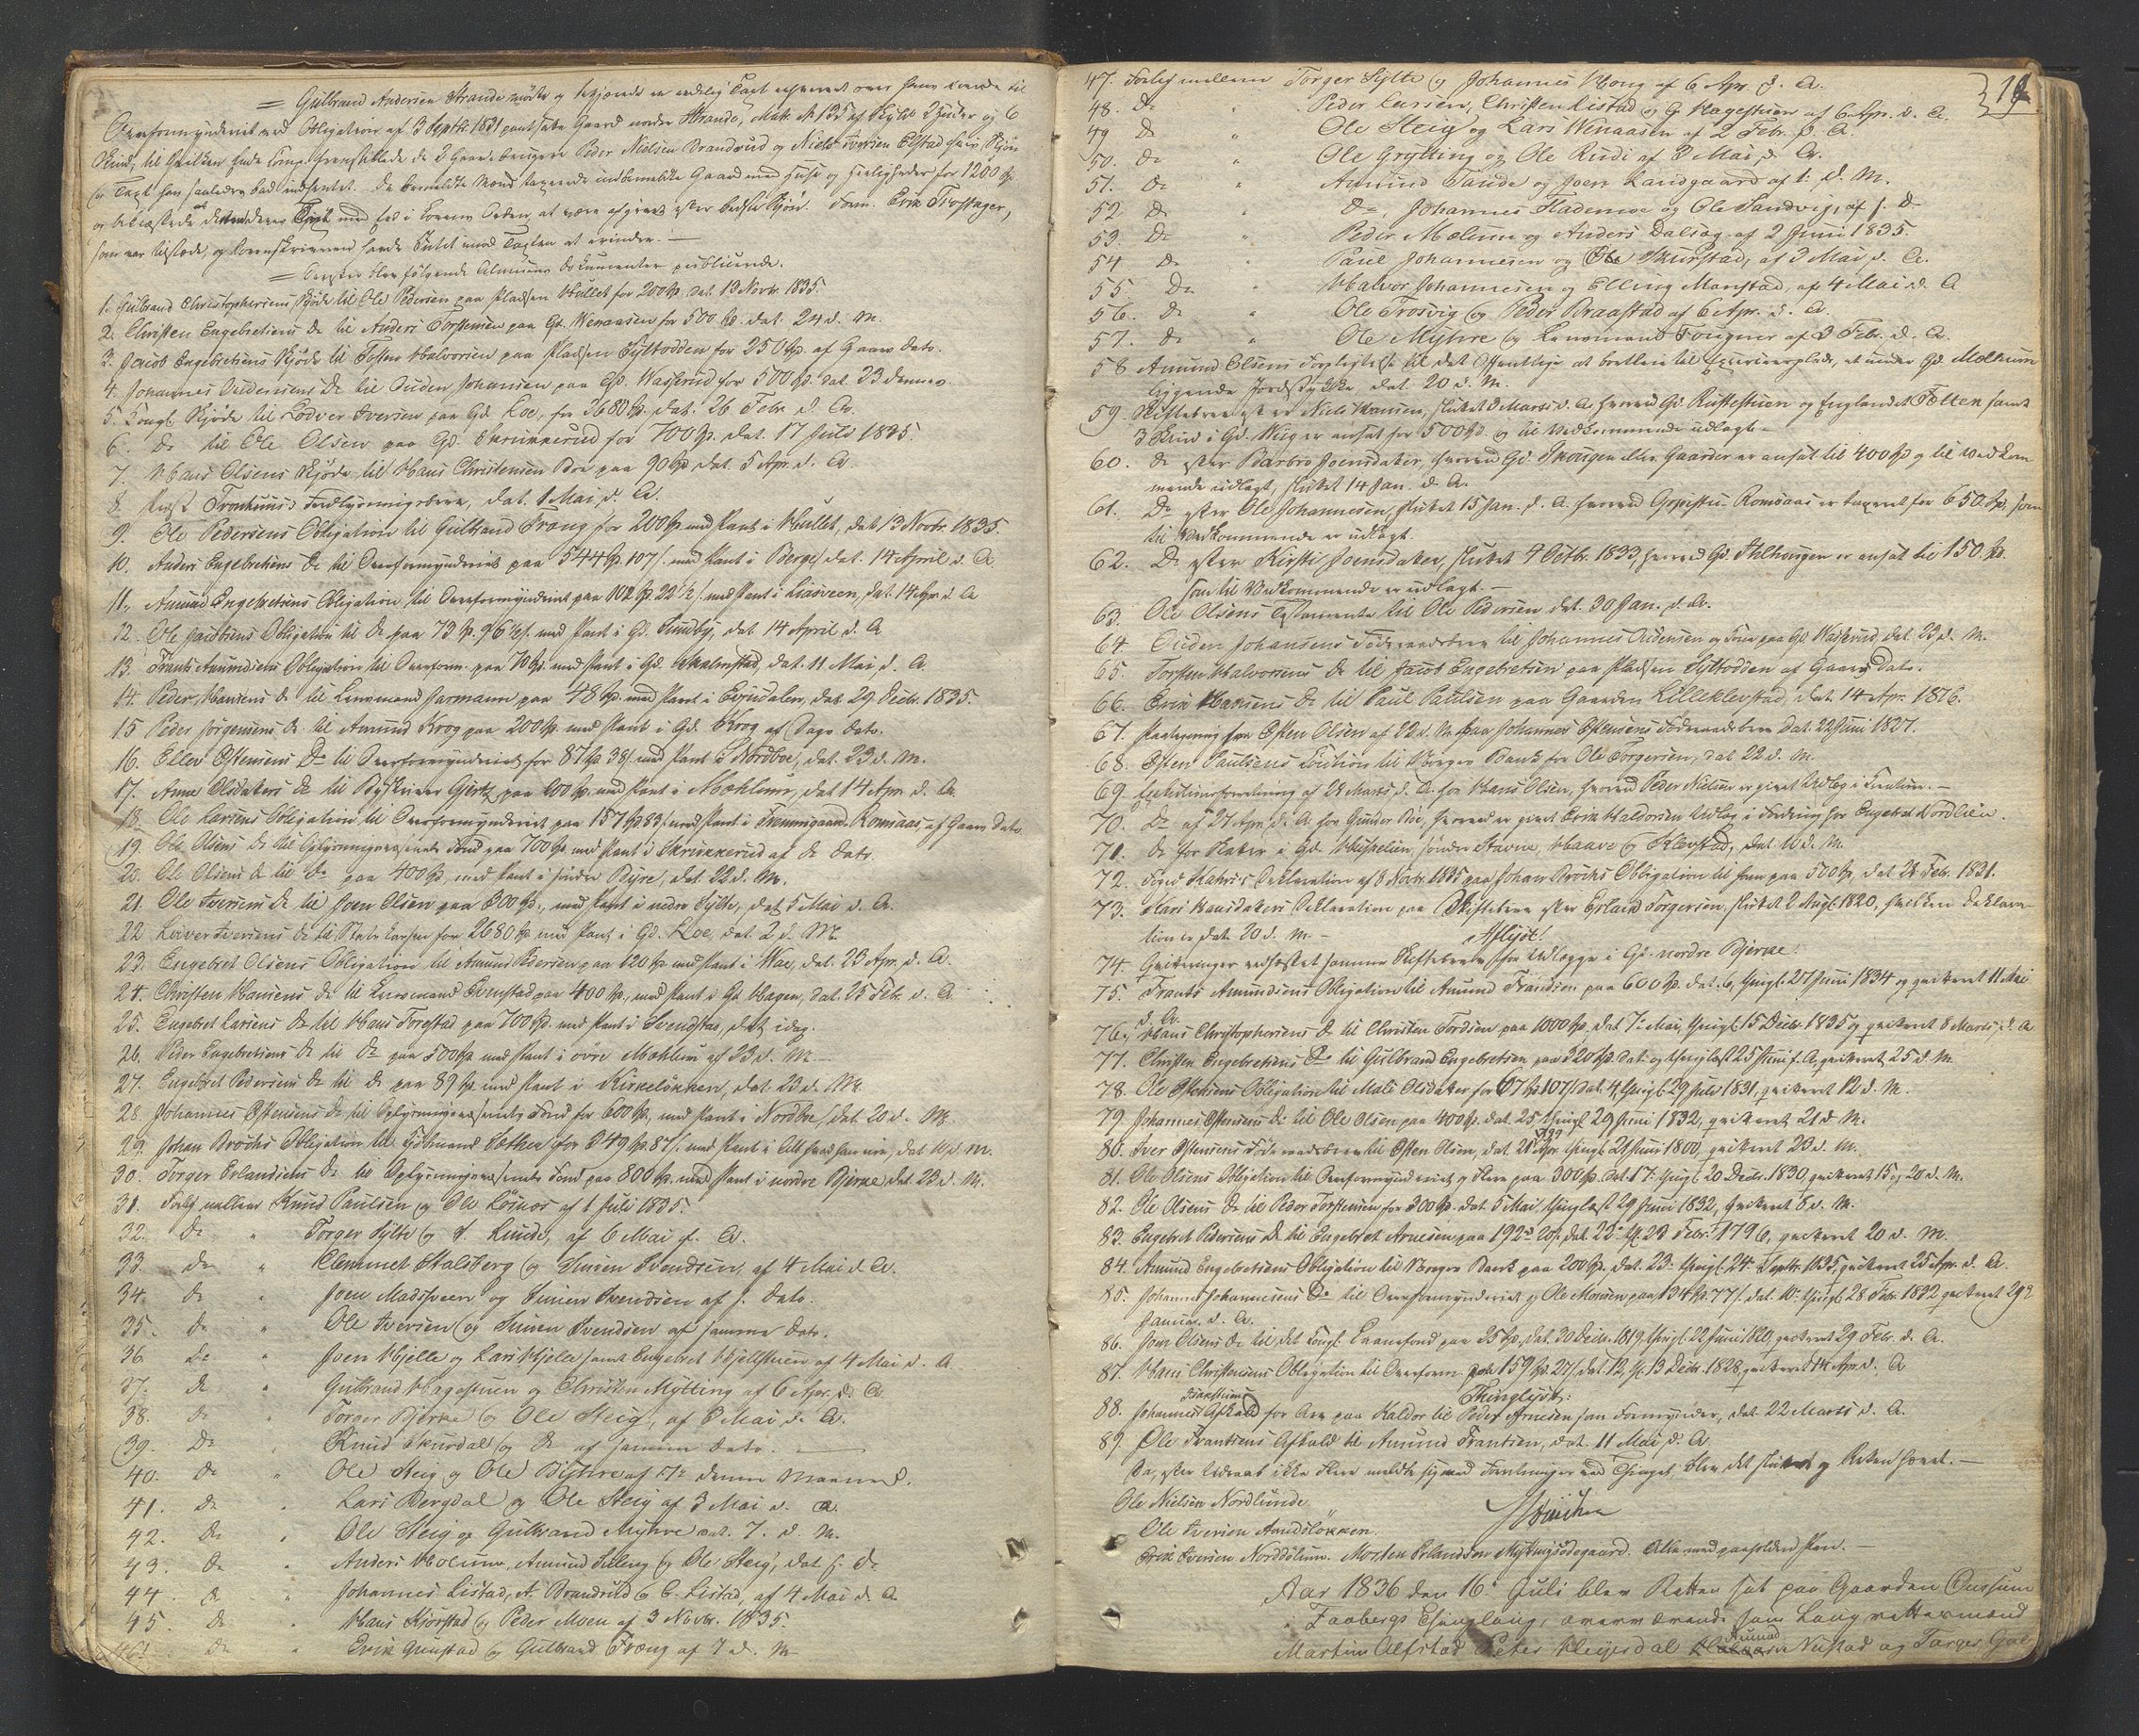 = Gulbrand Andersen Strande mødte og begjærede en lovlig Taxt optagen over hans
Overformynderiet ved Obligation af 3 Septbr. 1831 pantsatte Gaard nordre Strande, Matr. N 135 af Skyld 2 Huder og 6
Skind, til hvilken Ende Comp. fremstillede de 2 Gaardbrugere Peder Nielsen Brandvud og Niels Iversen
for 1200
og bekræftede denne deres Taxt med Eed i Lovens Orden, at være afgiven efter bedste Skjøn. Form. Erik Frostager,
som var tilstede, og Sorenskriveren havde Intet imod Taxten at erindre. —
= Derefter blev følgende Almuens Documenter publicerede.
1. Gulbrand Christophersens Skjøde til Ole Pedersen paa Pladsen Hullet for 200 Sp. dat. 13 Novbr. 1835.
2. Christen Engebretsens Do til Anders Torstensen paa Gd. Wenaasen for 500 Sp. dat. 24 d. M.
3. Jacob Engebretsens Skjøde til Tosten Halvorsen paa Pladsen Syltodden for 250 Sp. af Gaars Dato.
4. Johannes Audensens Do til Auden Johansen paa Gd. Wasserud for 500 Sp. dat. 23 dennes.
5. Kongl. Skjøde til Lodver Iversen paa Gd. Loe, for 3680 Sp. dat. 26 Febr. d. A.
6. Do til Ole Olsen paa Gd. Skrinkerud for 700 Sp. dat. 17 Juli 1835.
7. Hans Olsens Skjøde til Hans Christensen Boe paa 90 Sp. dat. 5 Apr. d. A.
8. dat. 1 Mai d. A.
9. Ole Pedersens Obligation til Gulbrand Fræng for 200 Sp. med Pant i Hullet, dat. 13 Novbr. 1835.
10. Anders Engebretsens Do til Overformynderiet paa 544 Sp. 107 s. med Pant i Berge, dat. 14 April d. A.
11. Amund Engebretsens Obligation til Overformynderiet paa 102 Sp. 22½ s. med Pant i Liasveen, dat. 14 Apr. d. A
12. Ole Jacobsens Obligation til Do paa 73 Sp. 96½ s. med Pant i Gd. Sundby, dat. 14 April d. A.
13. Frants Amundsens Obligation til Overform. paa 70 Sp. med Pant i Gd. Skalmstad, dat. 11 Mai d. A.
14. Peder Hansens Do til Lensmand Jarmann paa 48 Sp. med Pant i dat. 29 Decbr. 1835.
15 Peder Jørgensens Do til Amund Krog paa 200 Sp. med Pant i Gd. Krog af Dags Dato.
16. Ellev Ostensens Do til Overformynderiet for 87 Sp. 38 s. med Pant i Nordboe, dat. 23 d. M.
17. Anne Olsdatters Do til Gjertz paa 100 Sp. med Pant i Mæhlum, dat. 14 Apr. d. A.
18. Ole Larsens Obligation til Overformynderiet paa 157 Sp. 83 s. med Pant i Romsaas, af Gaars Dato
19. Ole Olsens Do til Oplysningsvæsenets Fond paa 700 Sp. med Pant i Skrinkerud af Do Dato.
20. Ole Olsens Do til Do paa 400 Sp. med Pant i søndre Byre, dat. 22 d. M.
21. Ole Iversens Do til Joen Olsen paa 300 Sp., med Pant i nedre Sylte, dat. 5 Mai d. A.
22 Lodver Iversens Do til Larsen for 2680 Sp. med Pant i Gd. Loe, dat. 2 d. M.
23. Engebret Olsens Obligation til Amund Pedersen paa 120 Sp. med Pant i Moe, dat. 23 Apr. d. A.
24. Christen Hansens Do til Lensmand paa 400 Sp., med Pant i Gd. Hagen, dat. 25 Febr. d. A.
25. Engebret Larsens Do til Hans Forestad paa 700 Sp. med Pant i Svendstad, dat. idag.
26. Peder Engebretsens Do til Do paa 500 Sp. med Pant i øvre Mæhlum af 23 d. M. —
27. Engebret Pedersens Do til Do paa 89 Sp. med Pant i Kirkeløkken, dat. 23 d. M.
28. Johannes Ostensens Do til Oplysningsvæsenets Fond for 600 Sp., med Pant i Nordboe, dat. 20 d. M.
29. Johan Brochs Obligation til Sothen for 349 Sp. 87 s. med Pant i Alt hvad han eier, dat. 10 d. M.
30. Torger Erlandsens Do til Oplysningsvæsenets Fond paa 800 Sp. med Pant i nordre Bjerke, dat. 22 d. M.
31. Forlig mellem Knud Paulsen og Ole Løsnæs af 1 Juli 1835.
32. Do " Torger Sylte og S. Lunde, af 6 Mai f. A.
33. Do " Clemmet Stalsberg og Simen Svendsen, af 4 Mai d. A.
34. Do " Joen Madshveen og Simen Svendsen af s. Dato.
35. Do " Ole Iversen og Simen Svendsen af samme Dato.
36. Do " Iver Hjelle og Lars Hjelle samt Engebret Hjellstuen af 4 Mai d. A.
37. Do " Gulbrand Hagestuen og Christen Mytting af 6 Apr. d. A.
38. Do " Torger Bjerke og Ole Steig, af 3 Mai d. A.
39. Do " Knud Skurdal og Do af samme Dato. —
40. Do " Ole Steig og Ole Byhre af 17de denne Maaned.
41. Do " Lars Bergdal og Ole Steig af 3 Mai d. A.
42. Do " Ole Steig og Gulbrand Myhre dat. 7. d. M.
43. Do " Anders Holum, Amund Silling og Ole Steig, dat. s. D.
44. Do " Johannes Listad, A. Brandvold og C. Listad, af 4 Mai d. A.
45. Do " Hans Kjørstad og Peder Moen af 3 Novbr. 1835.
46. Do " Erik Gunstad og Gulbrand Fræng af 7 d. M.
19
47. Forlig mellem Torger Sylte og Johannes Hong af 6 Apr. d. A.
48. Do " Peder Larsen, Christen Listad og G. Hagestuen af 6 Apr. d. A.
49 Do " Ole Steig og Lars Wenaasen af 2 Febr. d. A.
50. Do " Ole Grytting og Ole Rudi af 3 Mai d. A.
51. Do " Amund Tande og Joen Landgaard af 1. d. M.
52 Do " Do, Johannes Flademoe og Ole Sandvig, af s. D.
53. Do " Peder Mælum og Anders Dalsæg af 2 Juni 1835.
54 Do " Paul Johannesen og Ole Skurstad, af 3 Mai d. A.
55 Do " Halvor Johannesen og Elling Manstad, af 4 Mai d. A
56. Do " Ole Frosvig og Peder Braastad af 6 Apr. d. A.
57. Do " Ole Myhre og Lensmand Fougner af 3 Febr. d. A.
58 Amund Olsens Forpligtelse til det Offentlige at bortleie til Exerceerplads, et under Gd. Mælhum
liggende Jordstykke, dat. 20 d. M.
59 Skiftebrev efter Niels Hansen, sluttet 3 Marts d. A. hvorved Gd. Rustestuen og Englandet Tolten samt
3 Skind i Gd. Wiig er ansat for 500 Sp. og til Vedkommende udlagt. —
60. Do efter Barbro Joensdatter, hvorved Gd. Skougen eller Gaarder er ansat til 400 Sp. og til Vedkom
mende udlagt, sluttet 14 Jan. d. A.
61. Do efter Ole Johannesen, sluttet 15 Jan. d. A. hvorved Romsaas er taxeret for 650 Sp., som
til Vedkommende er udlagt.
62. Do efter Kirsti Joensdatter, sluttet 4 Octbr. 1833, hvorved Gd. er ansat til 150 Sp.
som til Vedkommende er udlagt. —
63. Ole Olsens Testamente til Ole Pedersen dat. 30 Jan. d. A.
64. Auden Johansens Føderaadsbrev til Johannes Audensen og Kone paa Gd. Wasserud, dat. 23 d. M.
65. Torsten Halvorsens Do til Jacob Engebretsen paa Pladsen Syltodden af Gaars Dato.
66. Erik Hansens Do til Paul Paulsen paa Gaarden Lilleklevstad, dat. 14 Apr. 1816.
67. fra Osten Olsen af 22 d. M. paa Johannes Ostensens Føderaadsbrev dat. 22 Juni 1827.
68. Osten Paulsens Caution til Norges Bank for Ole Torgersen, dat. 22 d. M.
69. Executionsforretning af 28 Marts d. A. hos Hans Olsen, hvorved Peder Nielsen er givet Udlæg i —
70. Do af 27 Apr. d. A. hos Gunder Boe, hvorved er givet Erik Halvorsen Udlæg i Fordring hos Engebret Nordlien.
71. Do for Skatter i Gd. søndre Stavne, Haave og Klevstad, dat. 10 d. M.
72. Declaration af 8 Novbr. 1835 paa Johan Brochs Obligation til ham paa 500 Sp., dat. 28 Febr. 1831.
73. Mari Hansdatters Declaration paa Skiftebrev efter Erland Torgersen, sluttet 2 Augt. 1820, hvilken Declara-
tion er dat. 20 d. M. —
Aflyst!
74. Qvitteringer vedhæftet samme Skiftebrev for Udlægge i Gd. nordre Bjerke.
75. Frants Amundsens Obligation til Amund Frandsen paa 600 Sp. dat. 6, thingl. 27 Juni 1834 og qvitteret 11 Mai
d. A.
76. Hans Christophersens Do til Christen Tordsen paa 1000 Sp. dat. 7de Mai, thingl. 15 Decbr. 1835 og qvitteret 8 Marts d. A.
77. Christen Engebretsens Do til Gulbrand Engebretsen paa 320 Sp. dat. og thinglæst 25 Juni f. A., qvitteret 25 d. M.
78. Ole Ostensens Obligation til Mali Olsdatter for 67 Sp. 107 s. dat. 4, thingl. 29 Juli 1831, qvitteret 12 d. M.
79. Johannes Ostensens Do til Ole Olsen paa 400 Sp. dat. 25, thingl. 29 Juni 1832, qvitteret 21 d. M.
80. Iver Ostensens Føderaadsbrev til Osten Olsen, dat. 28 Apr. thingl. 21 Juni 1800, qvitteret 23 d. M.
81. Ole Olsens Obligation til Overformynderiet og Flere paa 300 Sp. dat. 17 thingl. 20 Decbr. 1830, qvitteret 15 og 20 d. M.
82. Ole Olsens Do til Peder Torstensen for 300 Sp. dat. 5 Mai, thinglæst 29 Juni 1832, qvitteret 8 d. M.
83. Engebret Pedersens Do til Engebret Arnesen paa 192 dat. 22 th. 23 Febr. 1796, qvitteret 20 d. M.
84. Amund Engebretsens Obligation til Norges Bank paa 200 Sp. dat. 23 thingl. 24 Septbr. 1835, qvitteret 25 Apr. d. A.
85. Johannes Johannesens Do til Overformynderiet og Ole Monsen paa 134 Sp. 77 s. dat. 10 thingl. 28 Febr. 1832 qvitteret 29de
Januar d. A.
86. Joen Olsens Do til det Kongl. paa 25 Sp., dat. 20 Decbr. 1819, thingl. 22 Juni 1820, qvitteret 29 Febr. d. A.
87. Hans Christensens Obligation til Overform. paa 159 Sp. 27 s. dat. 12, th. 13 Decbr. 1828, qvitteret 14 Apr. d. A.
Thinglyst:
88. Johannes Afkald for Arv paa Kaldor til Peder Arnesen som Formynder, dat. 22 Marts d. A.
89. Ole Frantsens Afkald til Amund Frantsen, dat. 11 Mai d. A.
Da, efter Udraab ikke Flere meldte sig med Forretninger ved Thinget, blev det sluttet og Retten hævet. —
Ole Nielsen Nordlunde
Ole Iversen Aandsløkken.
Erik Iversen Norddølum. Morten Erlandsen Myttingsødegaard. Alle med paaholden Pen. —
Aar 1836 den 16de Juli blev Retten sat paa Gaarden Onssum
i Faabergs Thinglaug, overværende som Laugrettesmænd
Amund
Martin Alfstad Peter Nustad og Targer